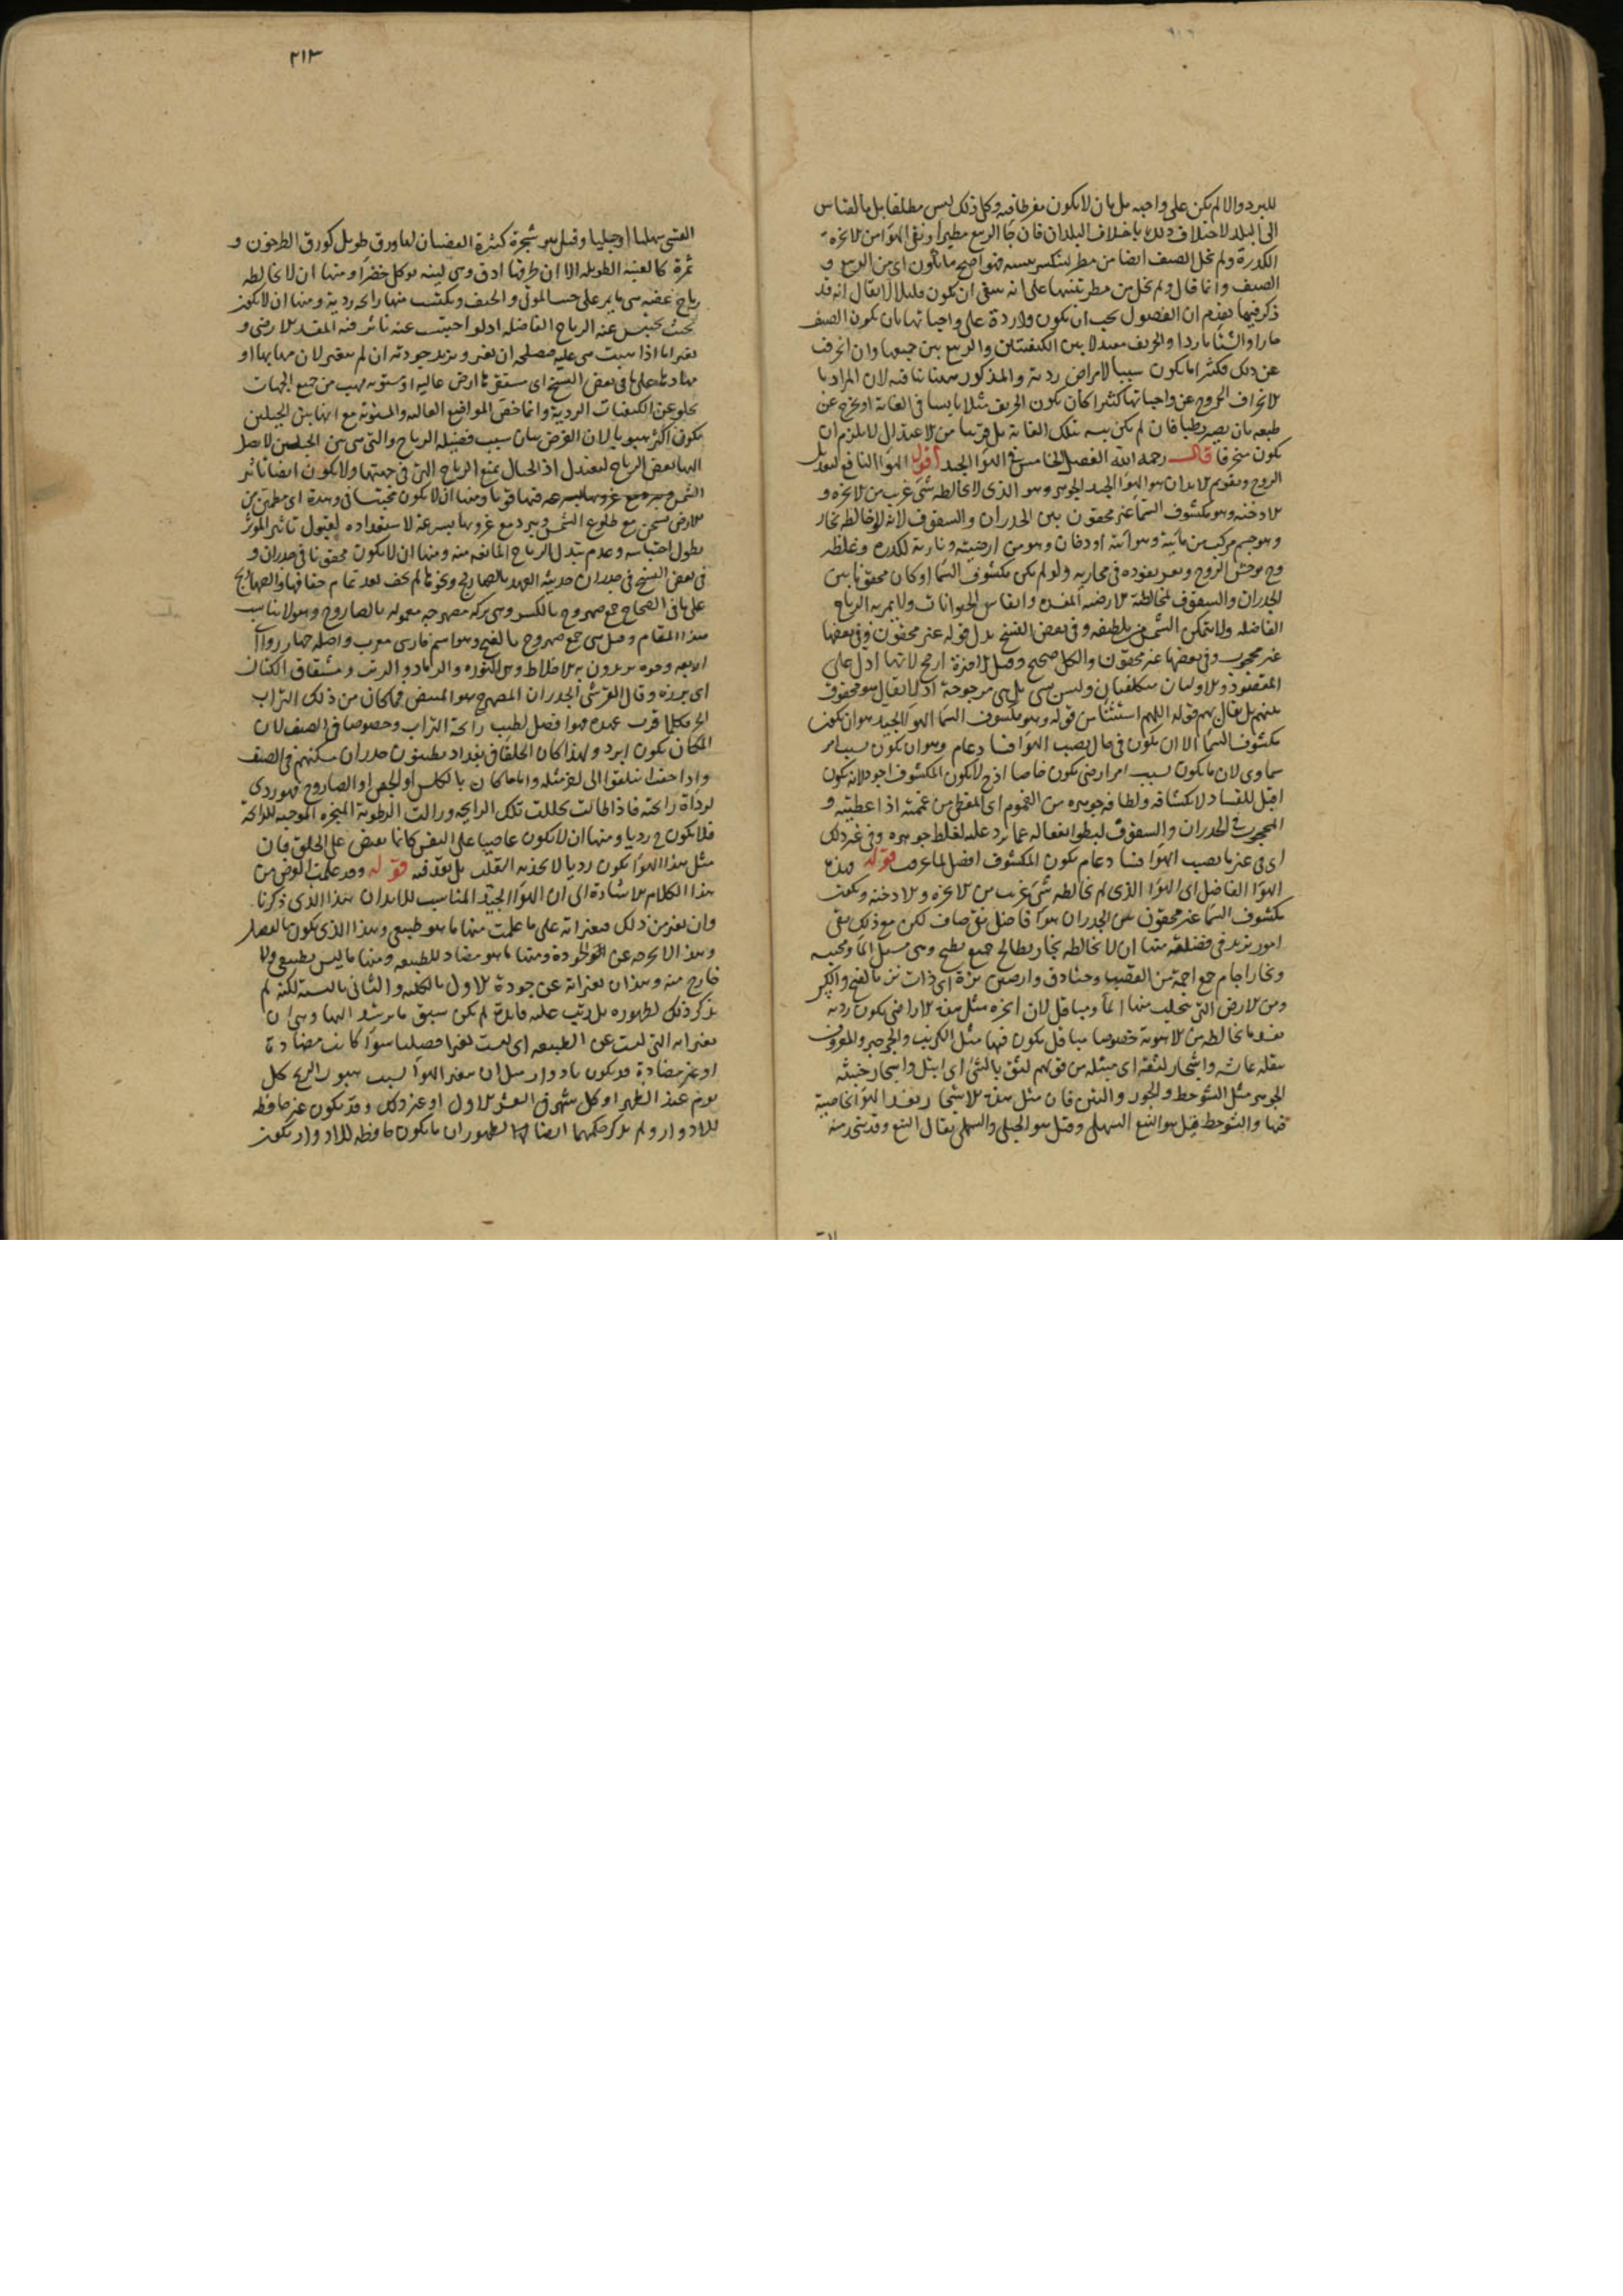 للبرد والا لم يكن على واجبه بل بان لا يكون مفرطا فيه وكل ذلك ليس مطلقا بل بالقياس
الى البلد لاختلاف ذلك باختلاف البلدان فان جا الربيع مطيرا ونقى الهوا من الابخرة
الكدرة ولم يخل الصيف ايضا من مطر ينكسر يبسه فهو اصح ما يكون اى من الربيع و
الصيف وانما قال ولم يخل من مطر تنبيها على انه ينبغى ان يكون قليلا لا يقال انه قد
ذكر فيما تقدم ان الفصول يجب ان يكون واردة على واجباتها بان يكون الصيف
حارا والشتا باردا والخريف معتدلا بين الكيفيتين والربيع بين جميعها وان انحرف
عن ذلك فكثيرا ما يكون سببا لامراض ردية والمذكور هنا ينافيه لان المراد با
لانحراف الخروج عن واجباتها كثيرا كان يكون الخريف مثلا يابسا فى الغاية او يخرج عن
طبعه بان يصير رطبا فان لم يكن يبسه بتلك الغاية بل قريبا من الاعتدال لا يلزم ان
يكون منحرفا قال رحمه الله الفصل الخامس فى الهوا الجيد اقول الهوا النافع لتعديل
الروح وتقويم الابدان هو الهوا الجيد الجوهر وهو الذى لا يخالطه شى غريب من الابخرة و
الادخنة وهو مكشوف السما غير محقون بين الجدران والسقوف لانه لو خالطه بخار
وهو جسم مركب من مائية وهوائية او دخان وهو من ارضية ونارية لكدره وغلظه
وح يوحش الروح ويعسر نفوذه فى مجاريه ولو لم يكن مكشوف السما او كان محقونا بين
الجدران والسقوف لمخالطة الارضية المفسده وانفاس الحيوانات ولا يمر به الرياح
الفاضله ولا يتمكن الشمس من تلطيفه وفى بعض النسخ بدل قوله غير محقون وفى بعضها
غير محجوب وفى بعضها غير محقون والكل صحيح وقيل الاخيرة ارجح لانها ادل على
المقصود والاوليان متكلفتان وليس بشى بل هى مرجوحة اذ لا يقال هو محقوف
عنهم بل يقال بهم قوله اللهم استثنا من قوله وهو مكشوف السما الهوا الجيد هو ان يكون
مكشوف السما الا ان يكون فى حال يصيب الهوا فسا د عام وهو ان يكون بسبب امر
سماوى لان ما يكون بسبب امر ارضى يكون خاصا اذ ح لا يكون المكشوف اجود لانه يكون
اقبل للفساد لانكشافه ولطافة جوهره من المغموم اى المغطى من غممته اذا غطيته و
المحجوب فى الجدران والسقوف لبطو انفعاله عما يرد عليه لغلظ جوهره وفى غير ذلك
اى فى غير ما يصيب الهوا فسا د عام يكون المكشوف افضل لما عرفت قوله فهذا
الهوا الفاضل اى الهوا الذى لم يخالطه شى غريب من الابخرة والادخنة ويكون
مكشوف السما غير محقون بين الجدران هوا فاضل نقى صاف لكن مع ذلك بقى
امور تزيد فى فضيلته منها ان لا يخالطه بخار بطايح جمع بطيح وهى مسيل الما ومحبسه
وبخار اجام جمع اجمة من القصب وخنادق وارضين نزة اى ذات نز بالفتح والكسر
وهى الارض التى يتحلب منها الما ومباقل لان ابخره مثل هذه الاراضى يكون ردية
تفسد ما يخالطه من الاهوية خصوصا مباقل يكون فيها مثل الكرنب والجرجير والمعروف
ببقلة عائشه واشجار لثقة اى مبتلة من قولهم لثق بالشى اى ابتل واشجار خبيثه
الجوهر مثل الشوحط والجوز والتين فان مثل هذه الاشجار يفسد الهوا بخاصية
فيها والشوحط قيل هو النبع السهلى وقيل هو الجبلى والسهلى يقال النبع وقد يتخذ منه
٢١٣
القسى سهليا او جبليا وقيل هو شجرة كثيرة القضبان لها ورق طويل كورق الطرخون و
ثمرة كالعنبة الطويله الا ان طرفها ادق وهى لينه توكل خضرا ومنها ان لا يخالطه
رياح عفنه هى ما يمر على جسد الموتى والجيف ويكتسب منها رائحه ردية ومنها ان لا يكون
بحيث يحتبس عنه الرياح الفاضله اذ لو احتبست عنه تاثر فيه المفسد الارضى و
تغير اما اذا هبت هى عليه فصلحه ان تغير ويزيد جودته ان لم يتغير لان مهابها او
مهاد بلة على ما فى بعض النسخ اى مستقرها ارض عاليه او مستويه يهب من جميع الجهات
يخلو عن الكيفيات الردية وانما خص المواضع العاليه والمستويه مع انها بين الجبلين
يكون اكثر هبوبا لان الغرض بيان سبب فضيله الرياح والتى هى بين الجبلين لا يصل
اليها بعض الرياح ليعتدل اذ الجبال يمنع الرياح التى فى جهتها ولا يكون ايضا تاثير
الشمس ويبرد مع غروبها بسرعه فيها قويا ومنها ان لا يكون محتبسا فى وهدة اى مطمئن من
الارض يسخن مع طلوع الشمس ويبرد مع غروبها بسرعة لاستعداده لقبول تاثير الموثر
بطول احتباسه وعدم تبدل الرياح المانعه منه ومنها ان لا يكون محقونا فى جدران و
فى بعض النسخ فى جدران حديثة العهد بالصهاريج ونحوها لم يجف بعد تمام جفافها والصهاريج
على ما فى الصحاح جمع صهروج بالكسر وهى بركة مصهرجه معموله بالصاروج وهو لا يناسب
هذا المقام وقيل هى جمع صهروج بالفتح وهو اسم فارسى معرب واصله چهار رو اى
الاربعه وجوه يريدون به الاخلاط وهى النورة والرماد والزيت ومشقاق الكتان
اى بزره وقال القرشى الجدران المصهرج هو المبيض فما كان من ذلك التراب
الحر فكلما قرب عهده فهو افضل لطيب رائحة التراب وخصوصا فى الصيف لان
المكان يكون ابرد ولهذا كان الخلفا فى بغداد يطينون جدران مسكنهم فى الصيف
واذا جفت انتقلوا الى اخر مثله واما ما كان بالكلس او الجص او الصاروج فهو ردى
لرداة رائحته فاذا طالت تحللت تلك الرايحه وزالت الرطوبة المبخرة الموجبه للرائحة
فلا يكون ح رديا ومنها ان لا يكون عاصيا على النفس كانما يقبض على الحلق فان
مثل هذا الهوا يكون رديا لا يجذبه القلب بل يقذفه قوله وقد علمت الغرض من
هذا الكلام الاشارة الى ان الهوا الجيد المناسب للابدان هذا الذى ذكرنا
وان تغير من ذلك فتغيراته على ما علمت منها ما هو طبيعى وهذا الذى يكون بالفصول
وهذا لا يخرجه عن الجودة ومنها ما هو مضاد للطبيعه ومنها ما ليس بطبيعى ولا
خارج منه وهذان تغيراته عن جودة الاول بالكليه والثانى بالنسبة لكنه لم
يذكر ذلك لظهوره بل رتب عليه فايدة لم يكن سبق ما يرشد اليها وهى ان
تغيراته التى ليست عن الطبيعه اى ليست تغيرا فصليا سوا كانت مضادة
او غير مضادة قد يكون بادوار مثل ان يتغير الهوا بسبب هبوب الريح كل
يوم عند الظهر او كل شهر فى العشر الاول او غير ذلك وقد يكون غير حافظه
للادوار ولم يذكر حكمهما ايضا لظهور ان ما يكون حافظه للادوار يكون